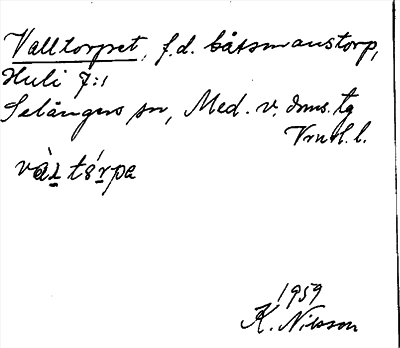 Valltorpet, f.d. båtsmanstorp,
Huli 7:1
Selångers sn, Med. v. dms. tg
Vrnl. l.
1959
K. Nilsson